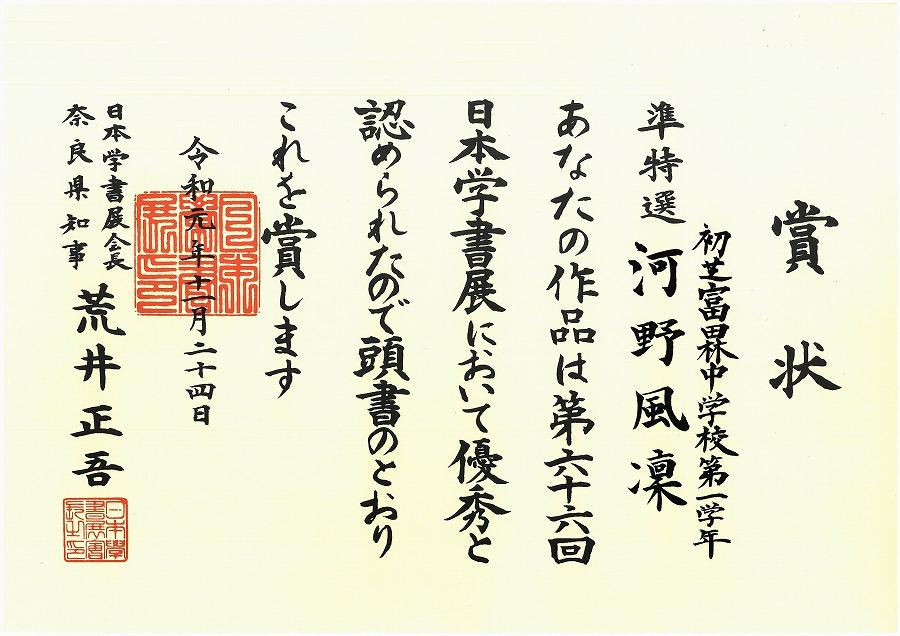 賞状
初芝富田林中学校第一学年
準特選 河野風凜
あなたの作品は第六十六回
日本学書展において優秀と
認められたので頭書のとおり
これを賞します
令和元年十一月二十四日
日本学書展会長
奈良県知事 荒井正吾
日本學
書展會
長之印